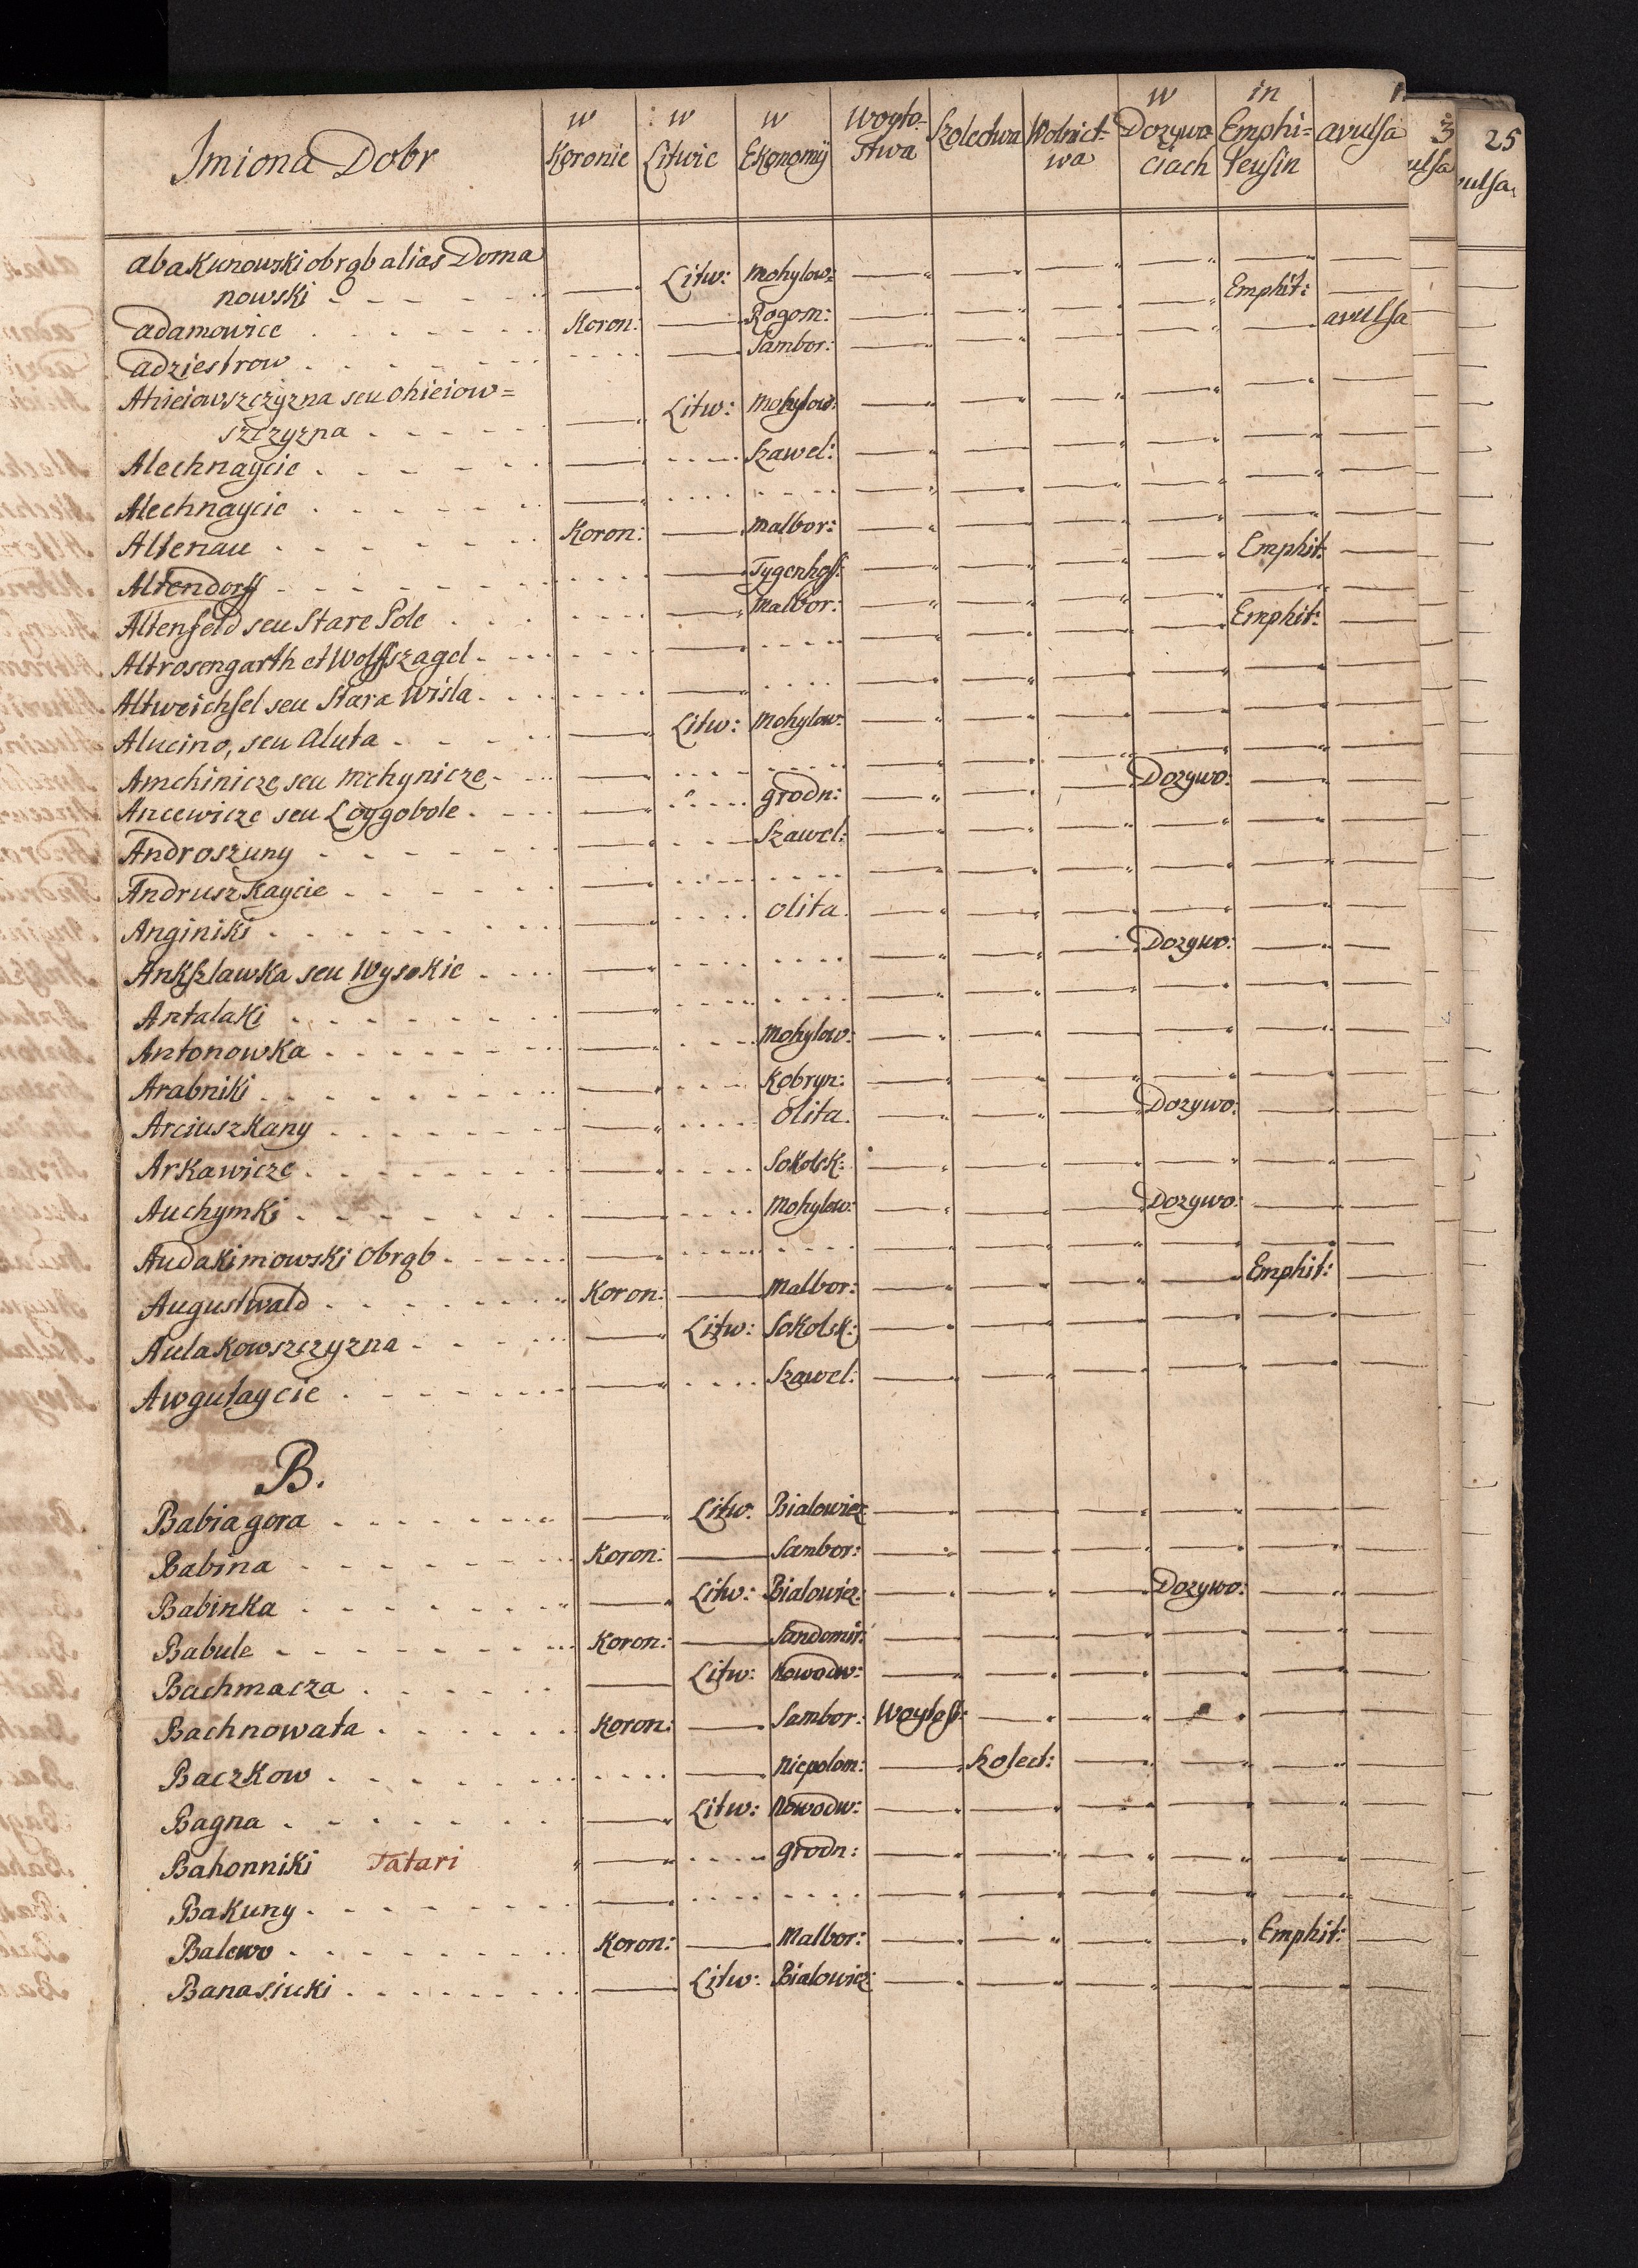 Imiona Dobr w Koronie w Litwie w Ekonomij Woyto-stwa Szolectwa Wolnict-wa w Dozywo-ciach in Emphi=teusin avulsa
25
vulsa
abaKunowski obrąb alias Doma
nowski Litw: Mohylow: Emphit:
adamowice Koron: Rogom: avulsa
adziestrow Sambor:
Ahieiowszczyzna seu ohieiow=
szczyzna Litw: Mohylow:
Alechnaycie Szawel:
Alechnaycie
Altenau Koron: Malbor:
Altendorff Tygenhof: Emphit:
Altenfeld seu Stare Pole Malbor:
Altrosengarth et Wolffszagel Emphit:
Altweichsel seu Stara Wisla
Alucino, seu Aluta Litw: Mohylow:
Amchinicze seu Mchynicze
Ancewicze seu Loygobole grodn: Dozywo:
Androszuny Szawel:
AndruszKaycie
Anginiki olita
AnKszlawKa seu WysoKie Dozywo:
AntalaKi
AntonowKa Mohylow:
Arabniki Kobryn:
ArciuszKany olita Dozywo:
ArKawicze SoKolsk:
AuchymKi Mohylow: Dozywo:
AudaKimowski Obrąb
Augustwald Koron: Malbor: Emphit:
AulaKowszczyzna Litw: SoKolsk:
Awgulaycie Szawel:
B.
Babia gora Litw: Bialowiez
Babina Koron: Sambor:
BabinKa Litw: Bialowiez: Dozywo:
Babule Koron: Sandomir:
Bachmacza Litw: Nowodw:
Bachnowata Koron: Sambor: Woytost:
BaczKow Niepolom: Szolect:
Bagna Litw: Nowodw:
Bahonniki Tatari grodn:
BaKuny
Balewo Koron: Malbor: Emphit:
Banasiucki Litw: Bialowiez: